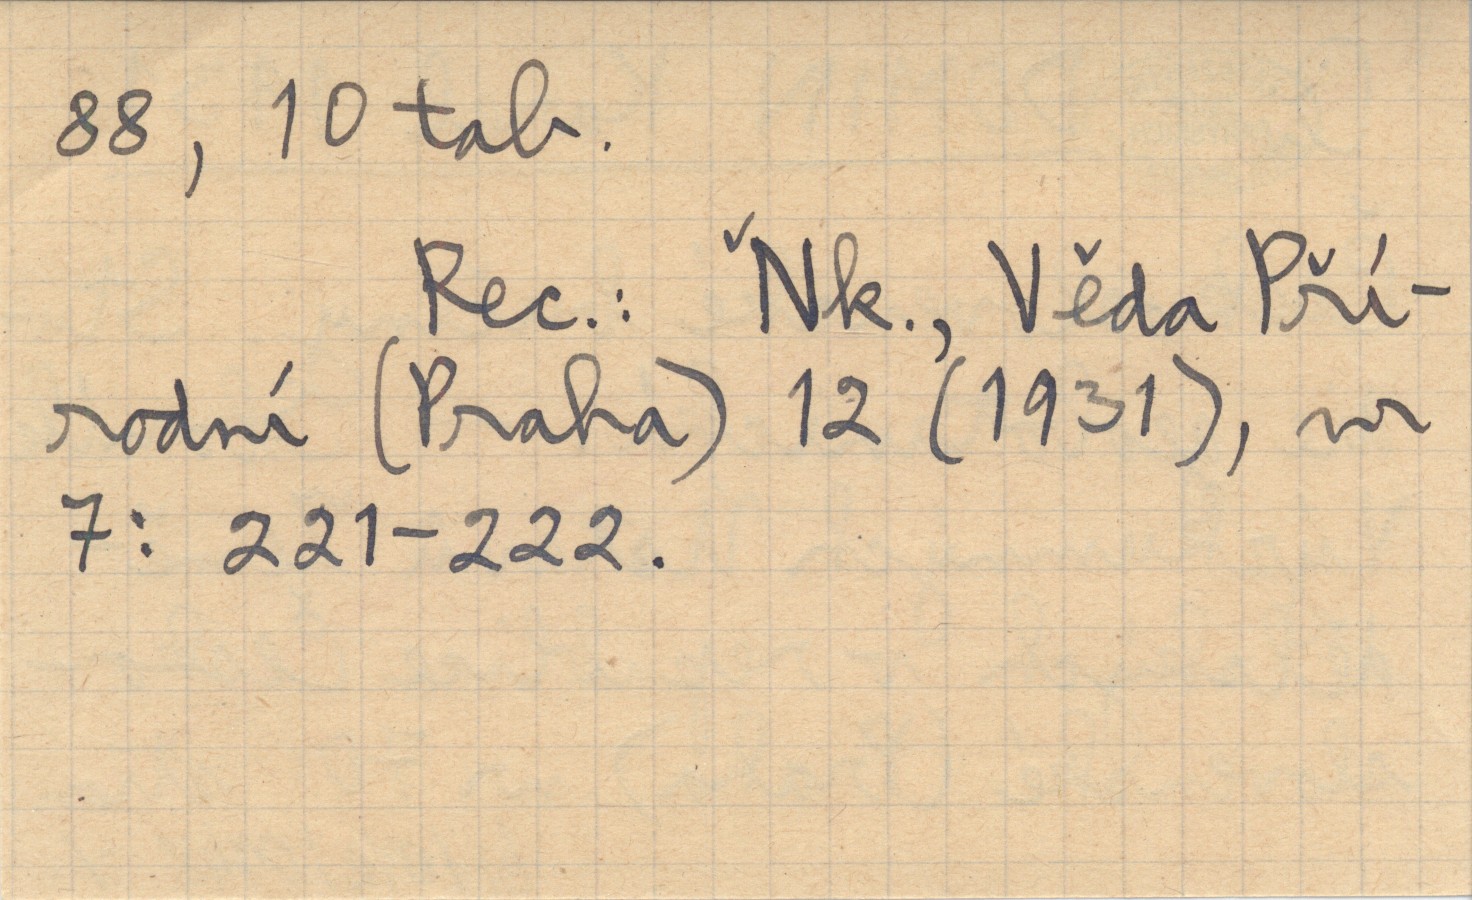 88, 10 tab.
Rec.: Ňk., Věda Pří-
rodní (Praha) 12 (1931), nr
7: 221-222.